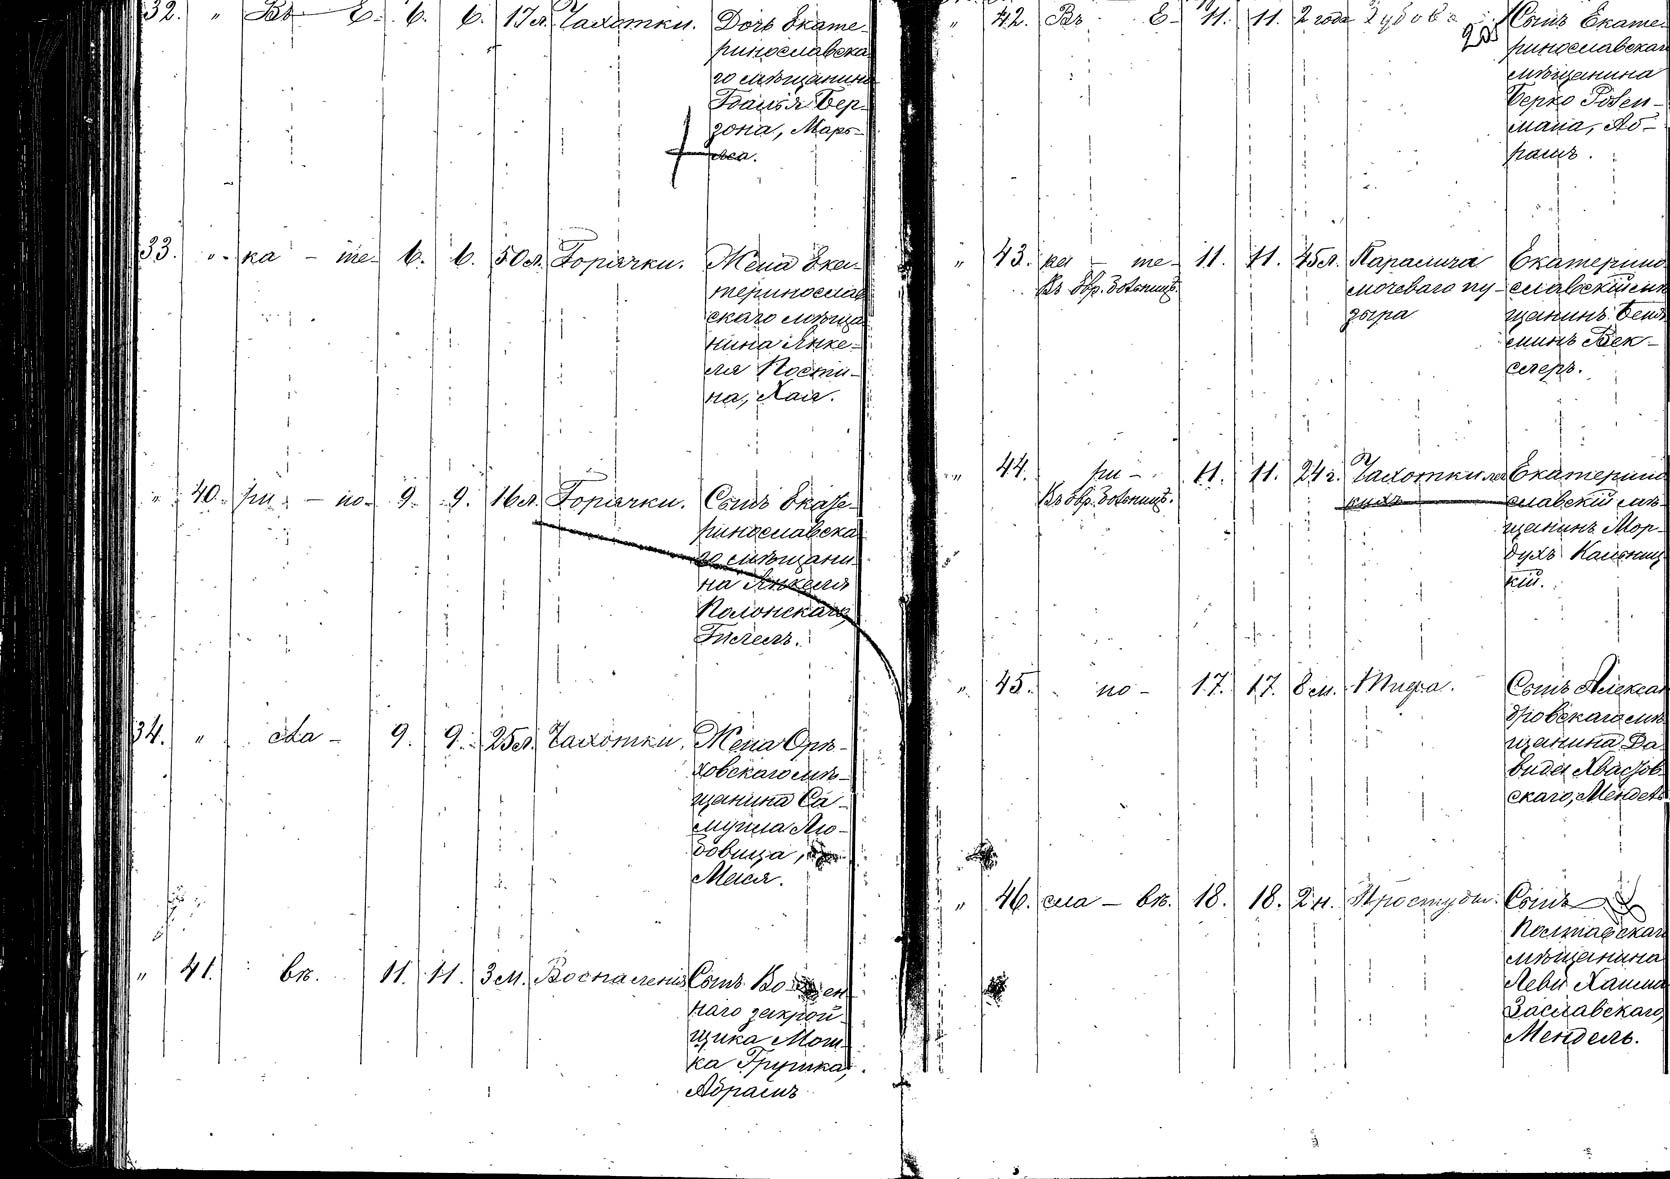 32. " Въ Е- 6. 6. 17 л. Чахотки. Дочь Екате-
ринославска-
го мѣщанина
Гдалья Бер-
зона, Марь-
яса.
33. " ка - те- 6. 6. 50 л. Горячки. Жена Ека-
теринослав
скаго мѣща
нина Янке-
ля Пости-
на, Хая.
" 40. ри - но- 9. 9. 16 л. Горячки. Сынъ Екате-
ринославска
го мѣщани-
на Янкеля
Полонскаго,
Гилель.
34. " сла- 9. 9. 25 л. Чахотки. Жена Орѣ-
ховскаго мѣ-
щанина Са-
муила Лю-
бовица,
Мася.
" 41. вѣ. 11. 11. 3 м. Воспаленія Сынъ
наго закрой-
щика Мош-
ка Грушка,
Абрамъ
" 42. Въ Е- 11. 11. 2 года Зубовъ Сынъ Екате-
205
ринославскаго
мѣщанина
Берко Розен-
мана, Аб-
рамъ.
" 43. ка - те- 11. 11. 45 л. Паралича Екатерино
Въ Евр. Больницѣ. мочеваго пу- славскій мѣ
зыря щанинъ Беня
минъ Век-
слеръ.
" 44. ри- 11. 11. 24 г. Чахотки лег Екатерино
Въ Евр. Больницѣ. кихъ славскій мѣ-
щанинъ Мор-
духъ Каменец
кій.
" 45. но- 17. 17. 8 м. Тифа. Сынъ Алексан
дровскаго мѣ
щанина Да
вида Хвастов-
скаго, Мендель
" 46. сла - вѣ. 18. 18. 2 н. Простуды. Сынъ
Полтавскаго
мѣщанина
Леви Хаима
Заславскаго,
Мендель.